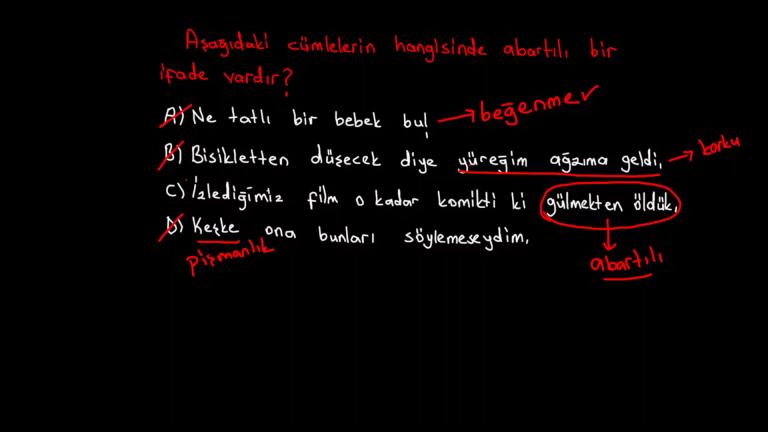 Aşağıdaki cümlelerin hangisinde abartılı bir
ifade vardır?
A) Ne tatlı bir bebek bu! → beğenmer
B) Bisikletten düşecek diye yüreğim ağzıma geldi. → korku
C) İzlediğimiz film o kadar komikti ki gülmekten öldük.
D) Keşke ona bunları söylemeseydim.
pişmanlık
abartılı